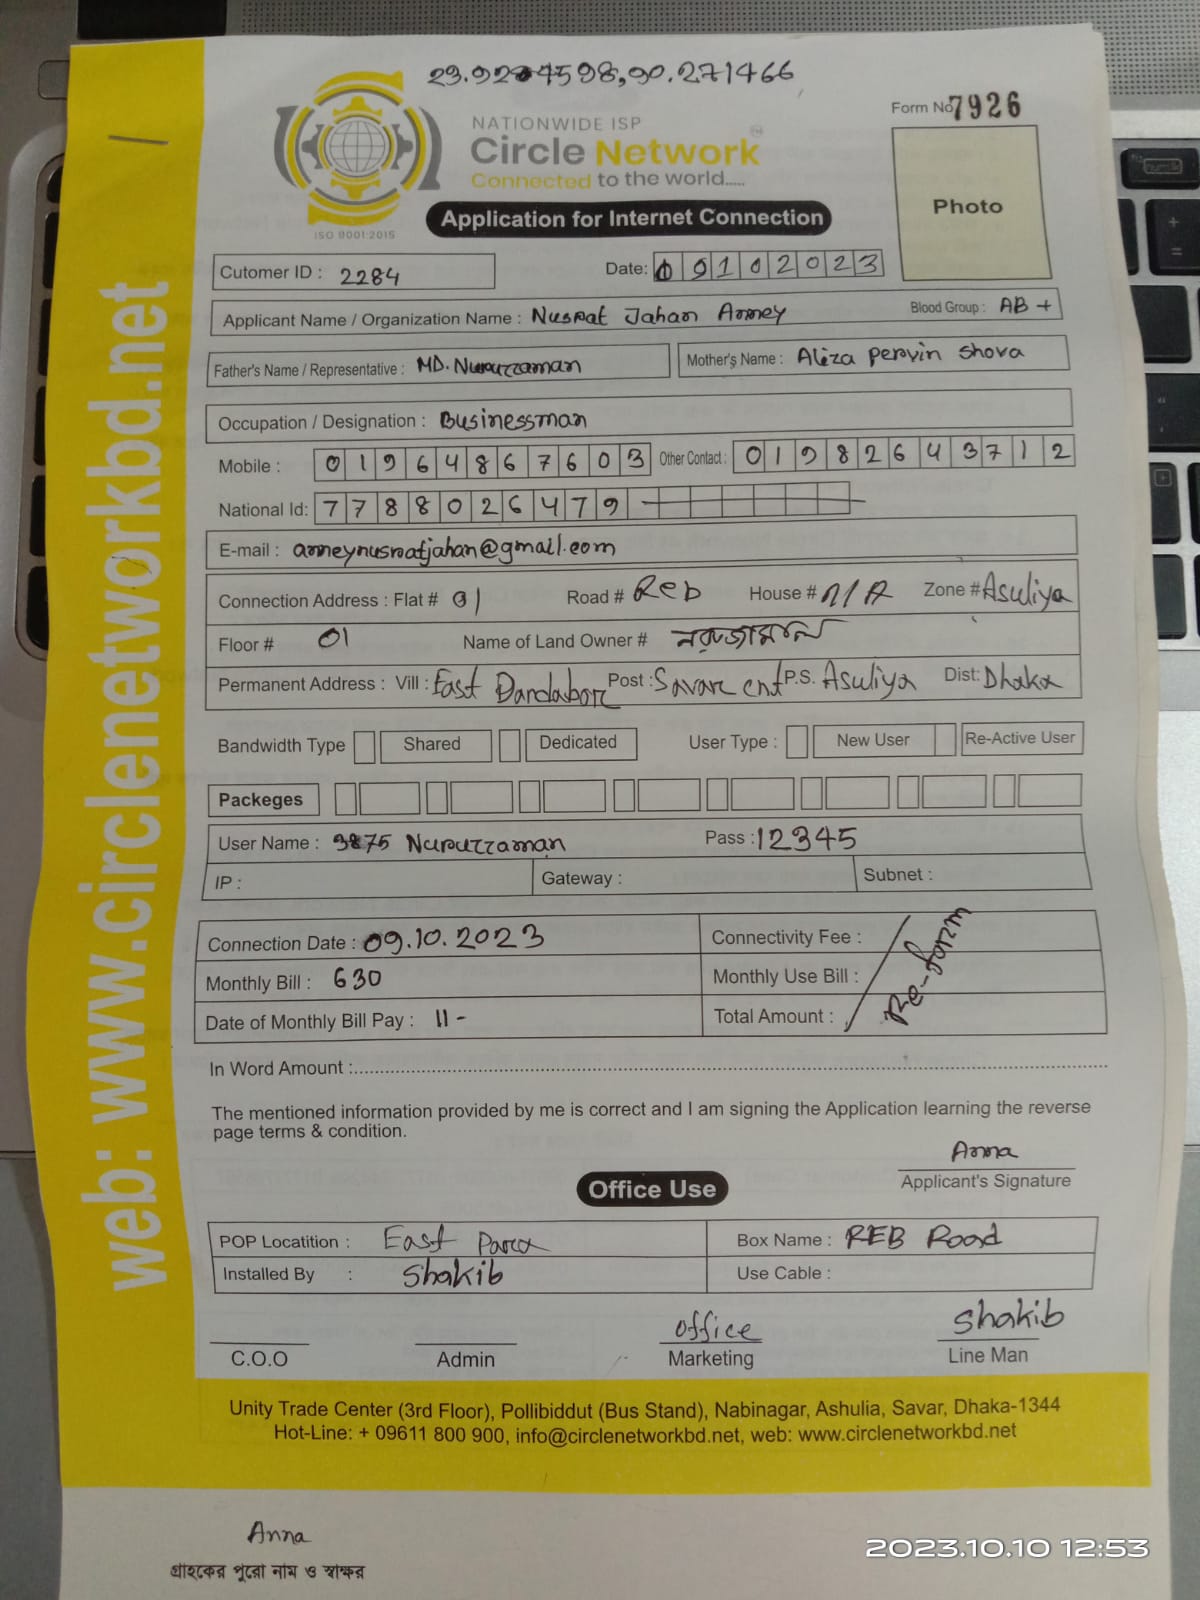 23.9284598,90.271466
Form No 7926
NATIONWIDE ISP
Circle Network
Connected to the world.....
ISO 9001:2015
Application for Internet Connection
Photo
Cutomer ID : 2284 Date: 09102023
Applicant Name / Organization Name : Nusrat Jahan Anney Blood Group : AB +
Father's Name / Representative : MD. Nuruzzaman Mother's Name : Aliza Pervin Shova
Occupation / Designation : Businessman
Mobile : 01964867603 Other Contact : 01982643712
National Id: 7788026479
E-mail : anneynusratjahan@gmail.com
Connection Address : Flat # 01 Road # Reb House # N/A Zone # Asuliya
Floor # 01 Name of Land Owner # নরুজ্জামান
Permanent Address : Vill : East Dandabor Post : Savar cnt P.S. Asuliya Dist: Dhaka
Bandwidth Type Shared Dedicated User Type : New User Re-Active User
Packeges
User Name : 3875 Nuruzzaman Pass : 12345
IP : Gateway : Subnet :
Connection Date : 09.10.2023 Connectivity Fee :
Monthly Bill : 630 Monthly Use Bill :
Date of Monthly Bill Pay : 11- Total Amount :
Re-form
In Word Amount :
The mentioned information provided by me is correct and I am signing the Application learning the reverse
page terms & condition.
Anna
Applicant's Signature
Office Use
POP Locatition : East Para Box Name : REB Road
Installed By : Shakib Use Cable :
Office Shakib
C.O.O Admin Marketing Line Man
Unity Trade Center (3rd Floor), Pollibiddut (Bus Stand), Nabinagar, Ashulia, Savar, Dhaka-1344
Hot-Line: + 09611 800 900, info@circlenetworkbd.net, web: www.circlenetworkbd.net
web: www.circlenetworkbd.net
Anna
গ্রাহকের পুরো নাম ও স্বাক্ষর
2023.10.10 12:53